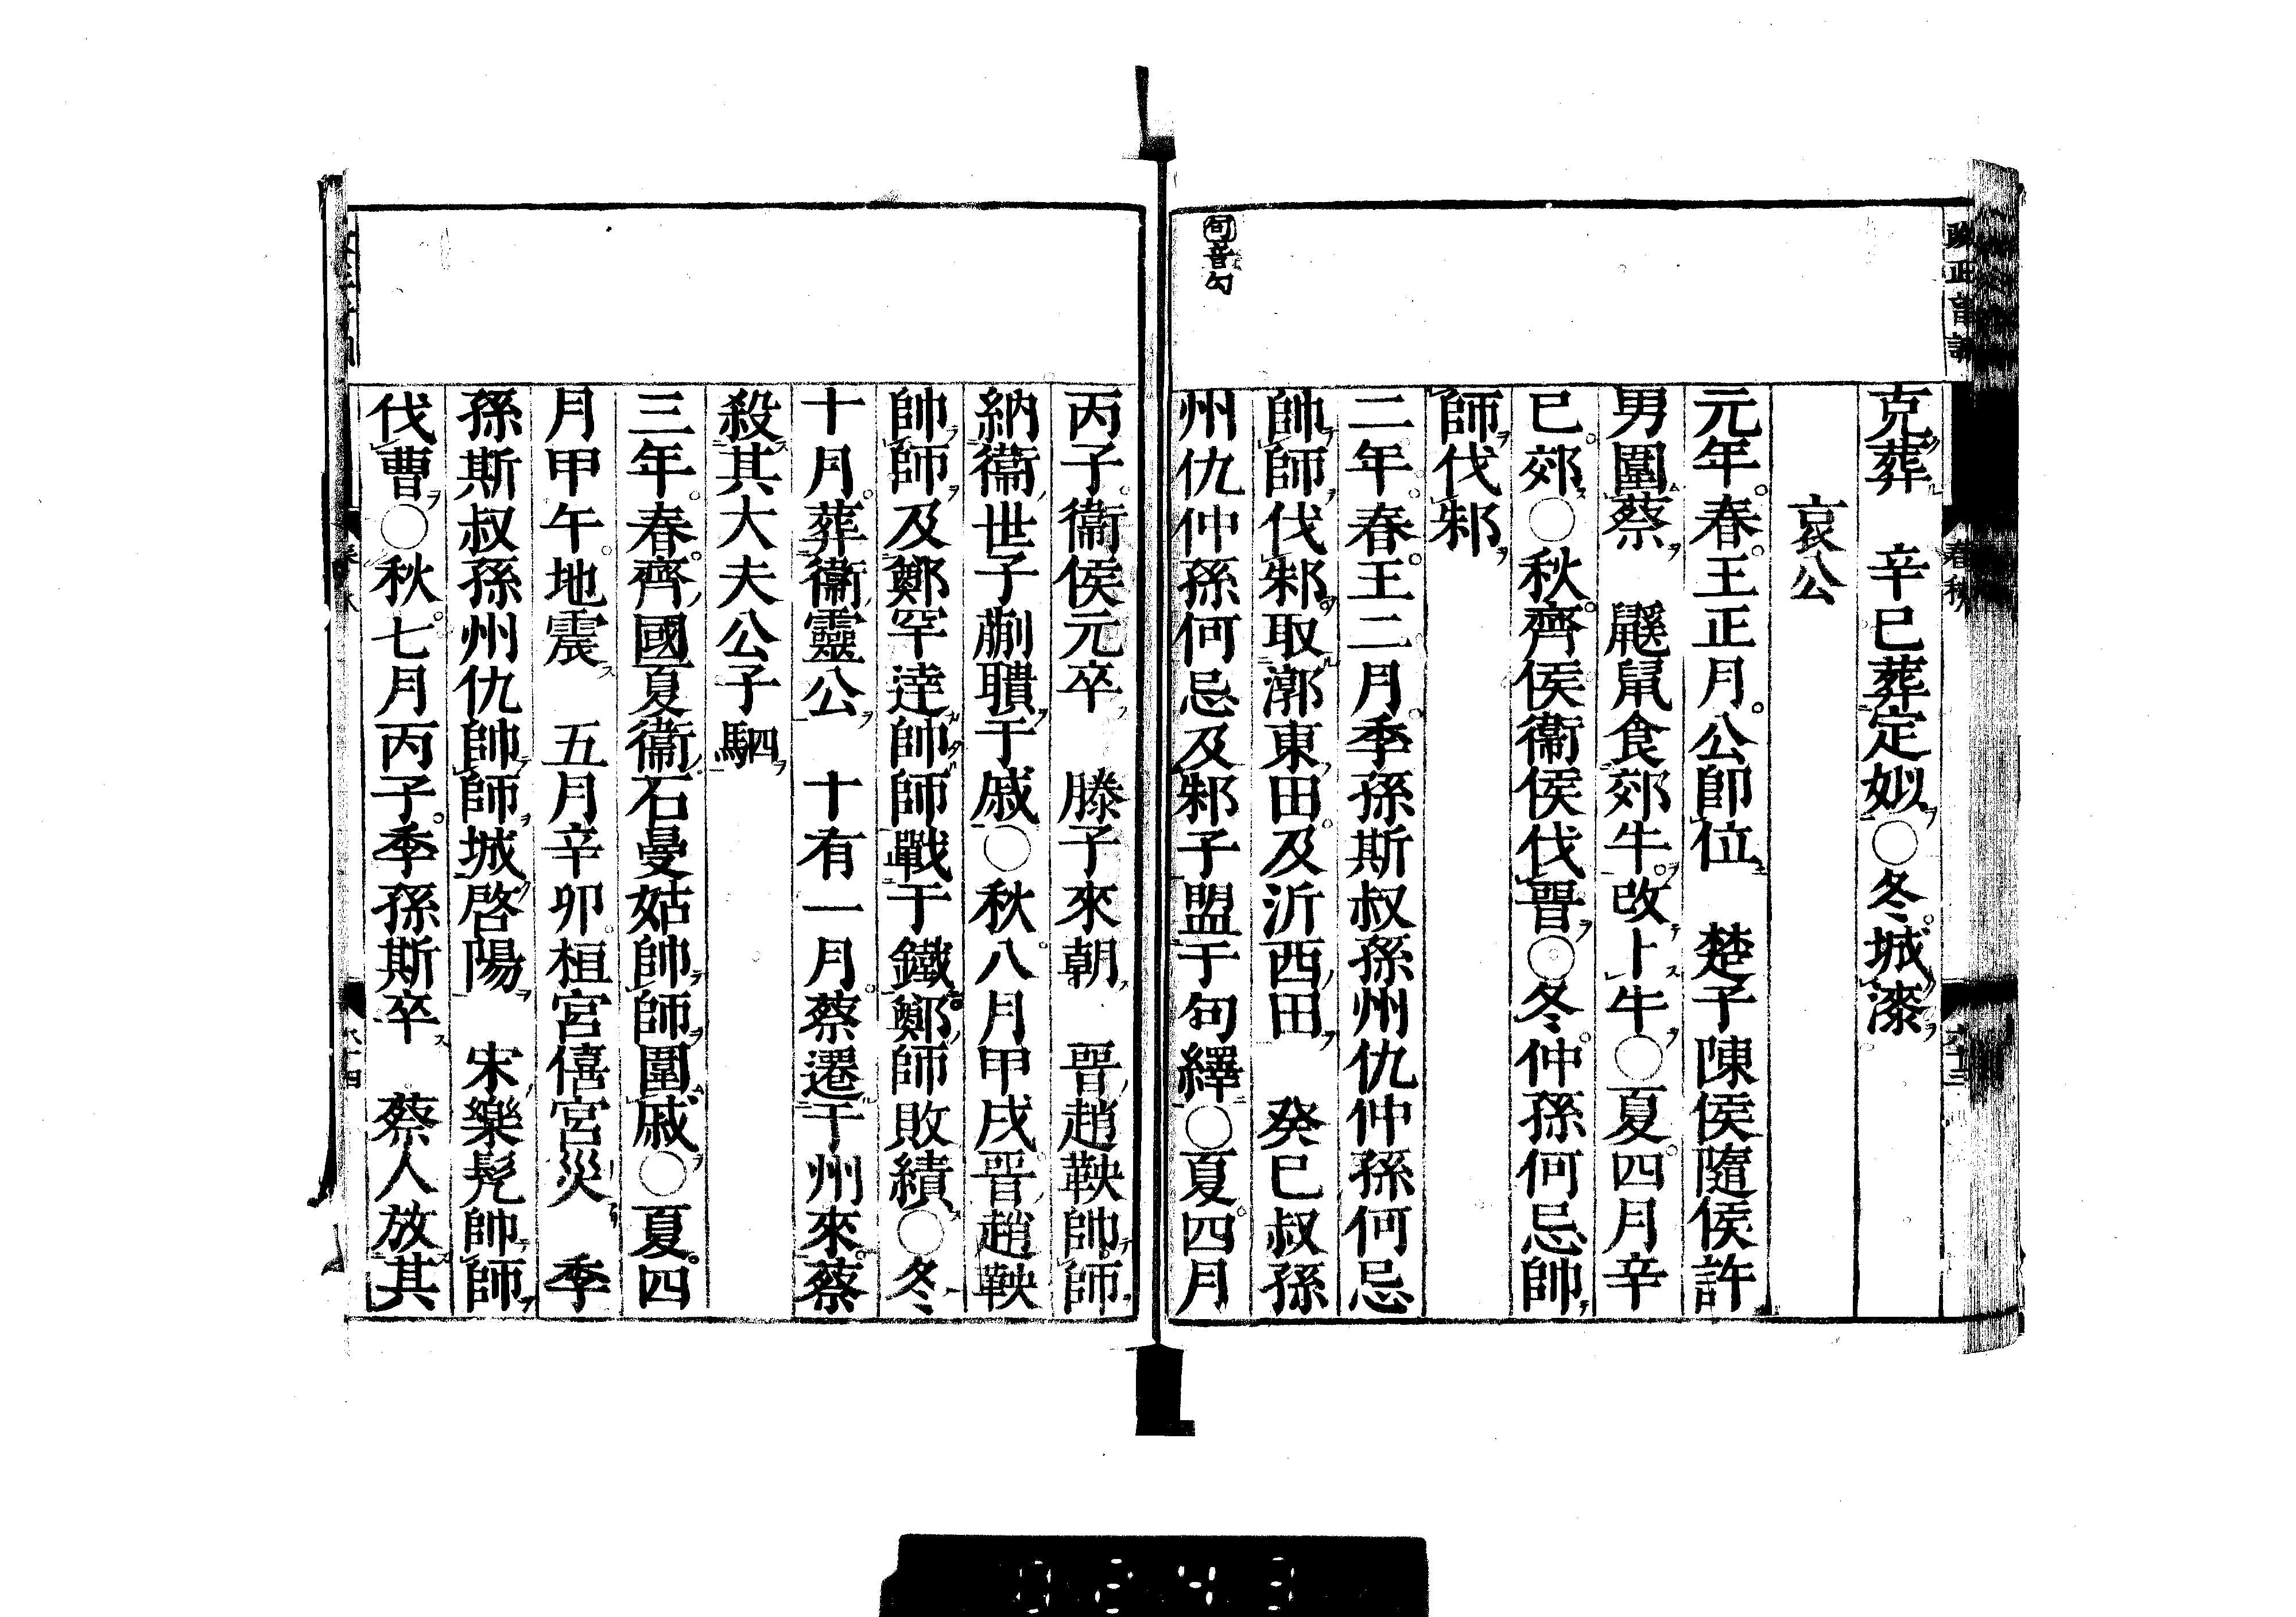 克葬　辛巳葬定姒〇冬城漆
哀公
元年春王正月公即位　楚子陳侯隨侯許
男圍蔡　鼷鼠食郊牛改卜牛〇夏四月辛
巳郊〇秋齊侯衞侯伐晉〇冬仲孫何忌帥
師伐邾
二年春王二月季孫斯叔孫州仇仲孫何忌
帥師伐邾取漷東田及沂西田　癸巳叔孫
州仇仲孫何忌及邾子盟于句繹〇夏四月
句音勾
丙子衞侯元卒　滕子來朝　晉趙鞅帥師
納衞世子蒯聵于戚〇秋八月甲戌晉趙鞅
帥師及鄭罕達帥師戰于鐵鄭師敗績〇冬
十月葬衞靈公　十有一月蔡遷于州來蔡
殺其大夫公子駟
三年春齊國夏衞石曼姑帥師圍戚〇夏四
月甲午地震　五月辛卯桓宮僖宮災　季
孫斯叔孫州仇帥師城啓陽　宋樂髡帥師
伐曹〇秋七月丙子季孫斯卒　蔡人放其
春秋